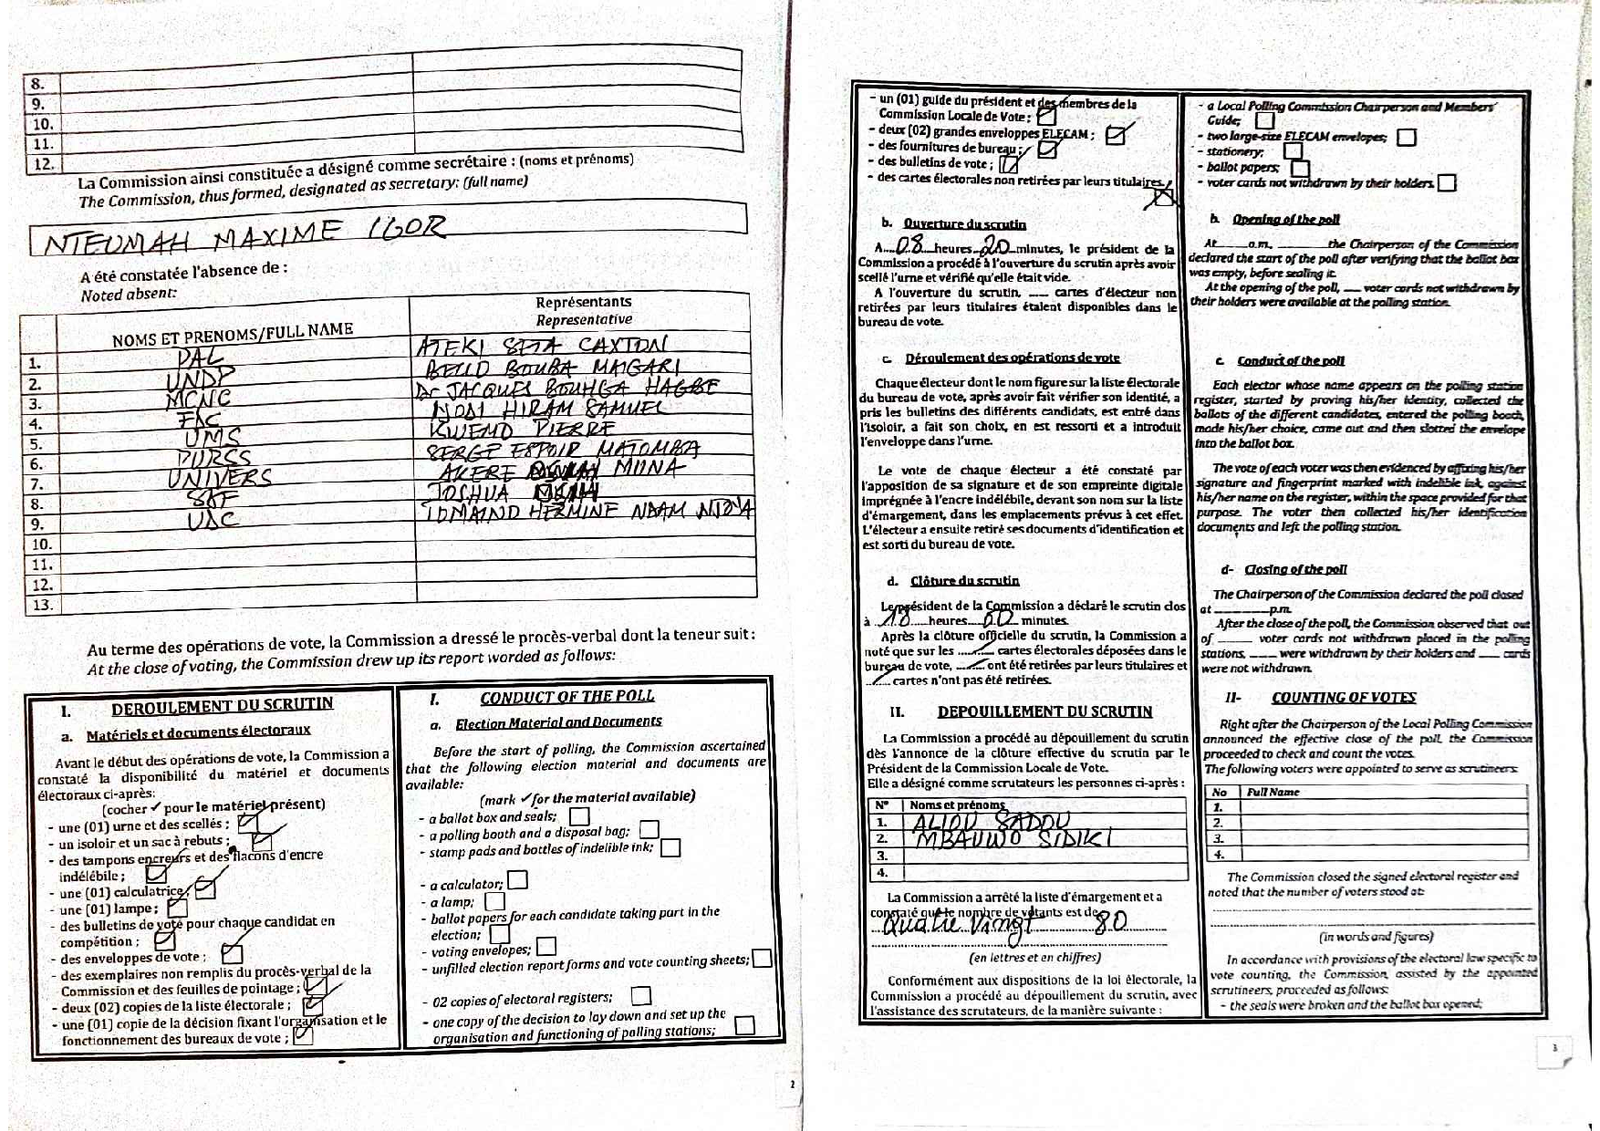 8.
9.
10.
11.
12.
La Commission ainsi constituée a désigné comme secrétaire : (noms et prénoms)
The Commission, thus formed, designated as secretary: (full name)
NTEUMAH MAXIME IGOR
A été constatée l'absence de :
Noted absent:
NOMS ET PRENOMS/FULL NAME
Représentants
Representative
1. PAL ATEKI SETA CAXTON
2. UNDP BELLO BOUBA MAIGARI
3. MCNC Dr JACQUES BOUHGA HAGBE
4. FAC NDAI HIRAM SAMUEL
5. UMS KWEMO PIERRE
6. PURCS SERGE ESPOIR MATOMBA
7. UNIVERS AKERE MUNA
8. JOSHUA
9. UDC TOMAINO HERMINE NDAM NJOYA
10.
11.
12.
13.
Au terme des opérations de vote, la Commission a dressé le procès-verbal dont la teneur suit :
At the close of voting, the Commission drew up its report worded as follows:
I. DEROULEMENT DU SCRUTIN
a. Matériels et documents électoraux
Avant le début des opérations de vote, la Commission a
constaté la disponibilité du matériel et documents
électoraux ci-après:
(cocher ✓ pour le matériel présent)
- une (01) urne et des scellés ;
- un isoloir et un sac à rebuts ;
- des tampons encreurs et des flacons d'encre
indélébile ;
- une (01) calculatrice,
- une (01) lampe ;
- des bulletins de vote pour chaque candidat en
compétition ;
- des enveloppes de vote ;
- des exemplaires non remplis du procès-verbal de la
Commission et des feuilles de pointage ;
- deux (02) copies de la liste électorale ;
- une (01) copie de la décision fixant l'organisation et le
fonctionnement des bureaux de vote ;
I. CONDUCT OF THE POLL
a. Election Material and Documents
Before the start of polling, the Commission ascertained
that the following election material and documents are
available:
(mark ✓ for the material available)
- a ballot box and seals;
- a polling booth and a disposal bag;
- stamp pads and bottles of indelible ink;
- a calculator;
- a lamp;
- ballot papers for each candidate taking part in the
election;
- voting envelopes;
- unfilled election report forms and vote counting sheets;
- 02 copies of electoral registers;
- one copy of the decision to lay down and set up the
organisation and functioning of polling stations;
2
- un (01) guide du président et des membres de la
Commission Locale de Vote ;
- deux (02) grandes enveloppes ELECAM ;
- des fournitures de bureau ;
- des bulletins de vote ;
- des cartes électorales non retirées par leurs titulaires
b. Ouverture du scrutin
A 08 heures 20 minutes, le président de la
Commission a procédé à l'ouverture du scrutin après avoir
scellé l'urne et vérifié qu'elle était vide.
A l'ouverture du scrutin, ___ cartes d'électeur non
retirées par leurs titulaires étaient disponibles dans le
bureau de vote.
c. Déroulement des opérations de vote
Chaque électeur dont le nom figure sur la liste électorale
du bureau de vote, après avoir fait vérifier son identité, a
pris les bulletins des différents candidats, est entré dans
l'isoloir, a fait son choix, en est ressorti et a introduit
l'enveloppe dans l'urne.
Le vote de chaque électeur a été constaté par
l'apposition de sa signature et de son empreinte digitale
imprégnée à l'encre indélébile, devant son nom sur la liste
d'émargement, dans les emplacements prévus à cet effet.
L'électeur a ensuite retiré ses documents d'identification et
est sorti du bureau de vote.
d. Clôture du scrutin
Le président de la Commission a déclaré le scrutin clos
à 18 heures 00 minutes.
Après la clôture officielle du scrutin, la Commission a
noté que sur les ...... cartes électorales déposées dans le
bureau de vote, ...... ont été retirées par leurs titulaires et
...... cartes n'ont pas été retirées.
II. DEPOUILLEMENT DU SCRUTIN
La Commission a procédé au dépouillement du scrutin
dès l'annonce de la clôture effective du scrutin par le
Président de la Commission Locale de Vote.
Elle a désigné comme scrutateurs les personnes ci-après :
N° Noms et prénoms
1. ALIOU SADOU
2. MBAUWO SIDIKI
3.
4.
La Commission a arrêté la liste d'émargement et a
constaté que le nombre de votants est de
Quatre Vingt 80
(en lettres et en chiffres)
Conformément aux dispositions de la loi électorale, la
Commission a procédé au dépouillement du scrutin, avec
l'assistance des scrutateurs, de la manière suivante :
- a Local Polling Commission Chairperson and Members'
Guide;
- two large-size ELECAM envelopes;
- stationery;
- ballot papers;
- voter cards not withdrawn by their holders
b. Opening of the poll
At ___ a.m. ___ the Chairperson of the Commission
declared the start of the poll after verifying that the ballot box
was empty, before sealing it.
At the opening of the poll, ___ voter cards not withdrawn by
their holders were available at the polling station.
c. Conduct of the poll
Each elector whose name appears on the polling station
register, started by proving his/her identity, collected the
ballots of the different candidates, entered the polling booth,
made his/her choice, came out and then slotted the envelope
into the ballot box.
The vote of each voter was then evidenced by affixing his/her
signature and fingerprint marked with indelible ink, against
his/her name on the register, within the space provided for that
purpose. The voter then collected his/her identification
documents and left the polling station.
d- Closing of the poll
The Chairperson of the Commission declared the poll closed
at ___ p.m.
After the close of the poll, the Commission observed that out
of ___ voter cards not withdrawn placed in the polling
stations, ___ were withdrawn by their holders and ___ cards
were not withdrawn.
II- COUNTING OF VOTES
Right after the Chairperson of the Local Polling Commission
announced the effective close of the poll, the Commission
proceeded to check and count the votes.
The following voters were appointed to serve as scrutineers:
No Full Name
1.
2.
3.
4.
The Commission closed the signed electoral register and
noted that the number of voters stood at:
(in words and figures)
In accordance with provisions of the electoral law specific to
vote counting, the Commission, assisted by the appointed
scrutineers, proceeded as follows:
- the seals were broken and the ballot box opened;
3